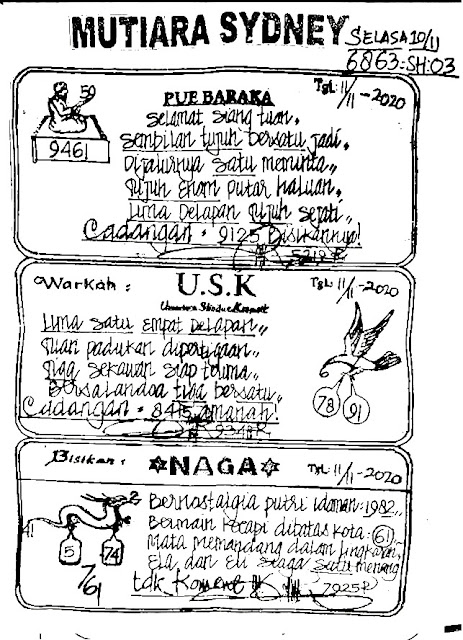 MUTIARA SYDNEY
SELASA 10/11
6863=SH:03
Tgl: 11/11-2020
50
9461
PUE BARAKA
Selamat siang tuan,
Sembilan tujuh bersatu jadi,,
Dijalurnya satu meminta,,
Tujuh Enam putar haluan,
Lima Delapan Tujuh sejati,,
Cadangan = 9125 Bisikannya!
Warkah:
U.S.K
Tgl: 11/11-2020
Lima satu empat Delapan,,
Tuan padukan dipertigaan,,
Tiga sekawan siap terima,,
tiga bersatu,,
Cadangan = 8415 Amanah!
9348R
6
78
91
Bisikan:
NAGA
Tgl: 11/11-2020
Bernostalgia putri idaman:1982,,
Bermain kecapi dibatas kota: 61
Mata Memandang dalam lingkaran,
Ela dan Eli siaga satu menang
tdk Koment
7925R
2
41
5
74
761